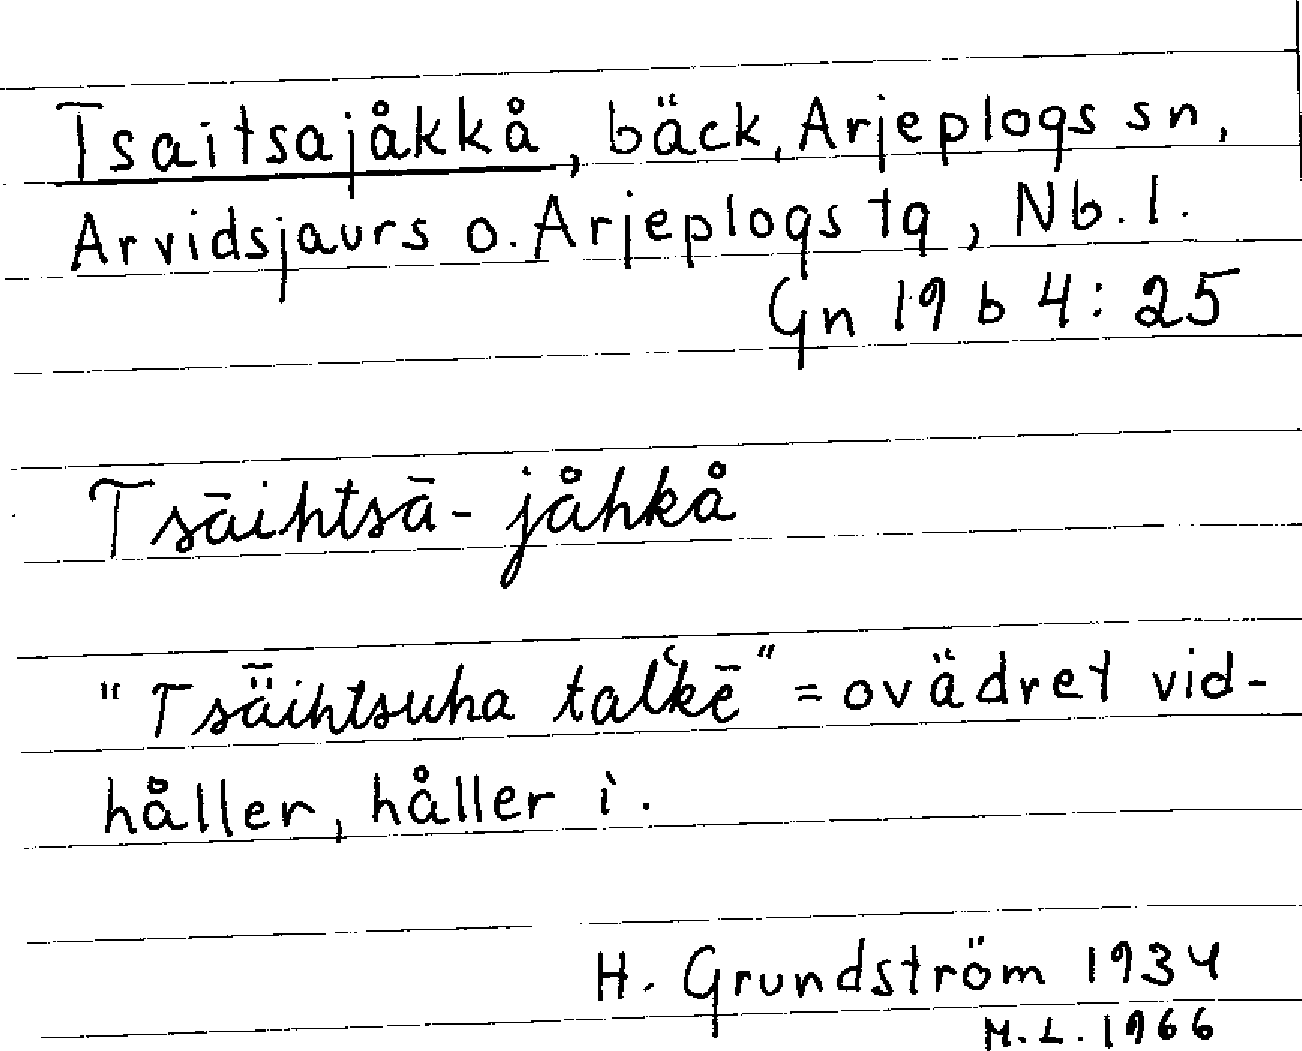 Tsaitsajåkkå, bäck, Arjeplogs sn,
Arvidsjaurs o. Arjeplogs tg, Nb. l.
Gn 19 b 4:25
Tsāihtsā-jåhkå
"Tsǟihtsuha talʻkē" = ovädret vid-
håller, håller i.
H. Grundström 1934
M.L. 1966